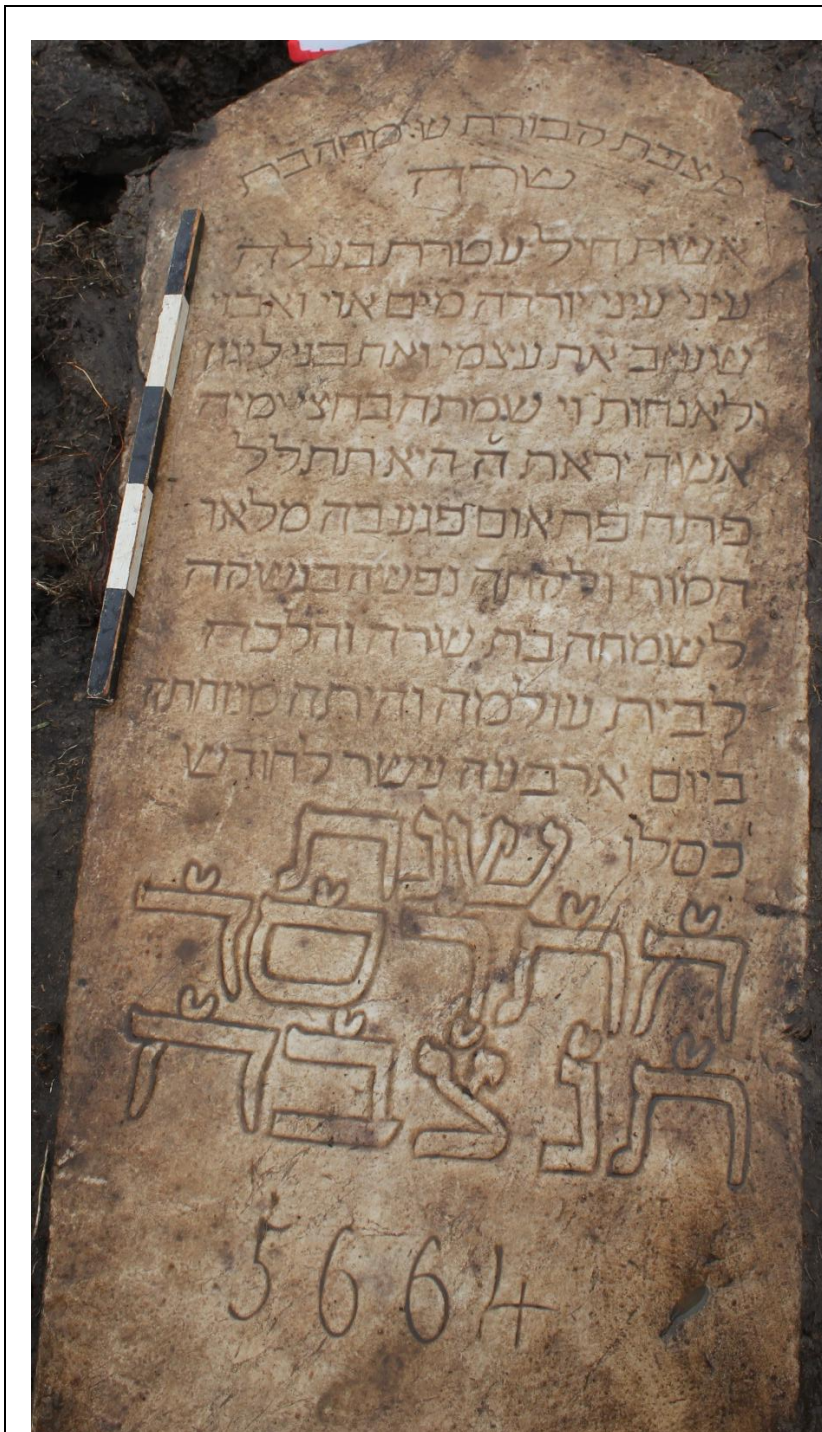 מצבת קבורת שמחה בת
שרה
אשת חיל עטרת בעלה
עיני עיני יורדה מים אוי ואבוי
שעזב את עצמי ואת בני ליגון
ולאנחות וי שמתה בחצי ימיה
אשה יראת ה היא תתלל
פתח פתאום פגע בה מלאו
המות ולקחה נפשה בנשקה
לשמחה בת שרה והלכה
לבית עולמה והיתה מנוחתה
ביום ארבעה עשר לחודש
כסלו שנת
התרסד
תנצבה
5664